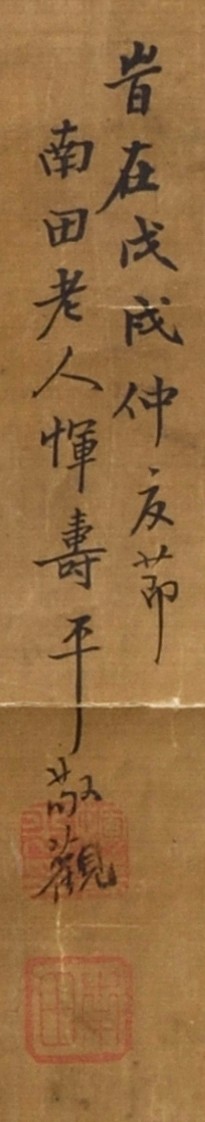 旹在戊戌仲夏節
南田老人惲壽平敬觀
南田